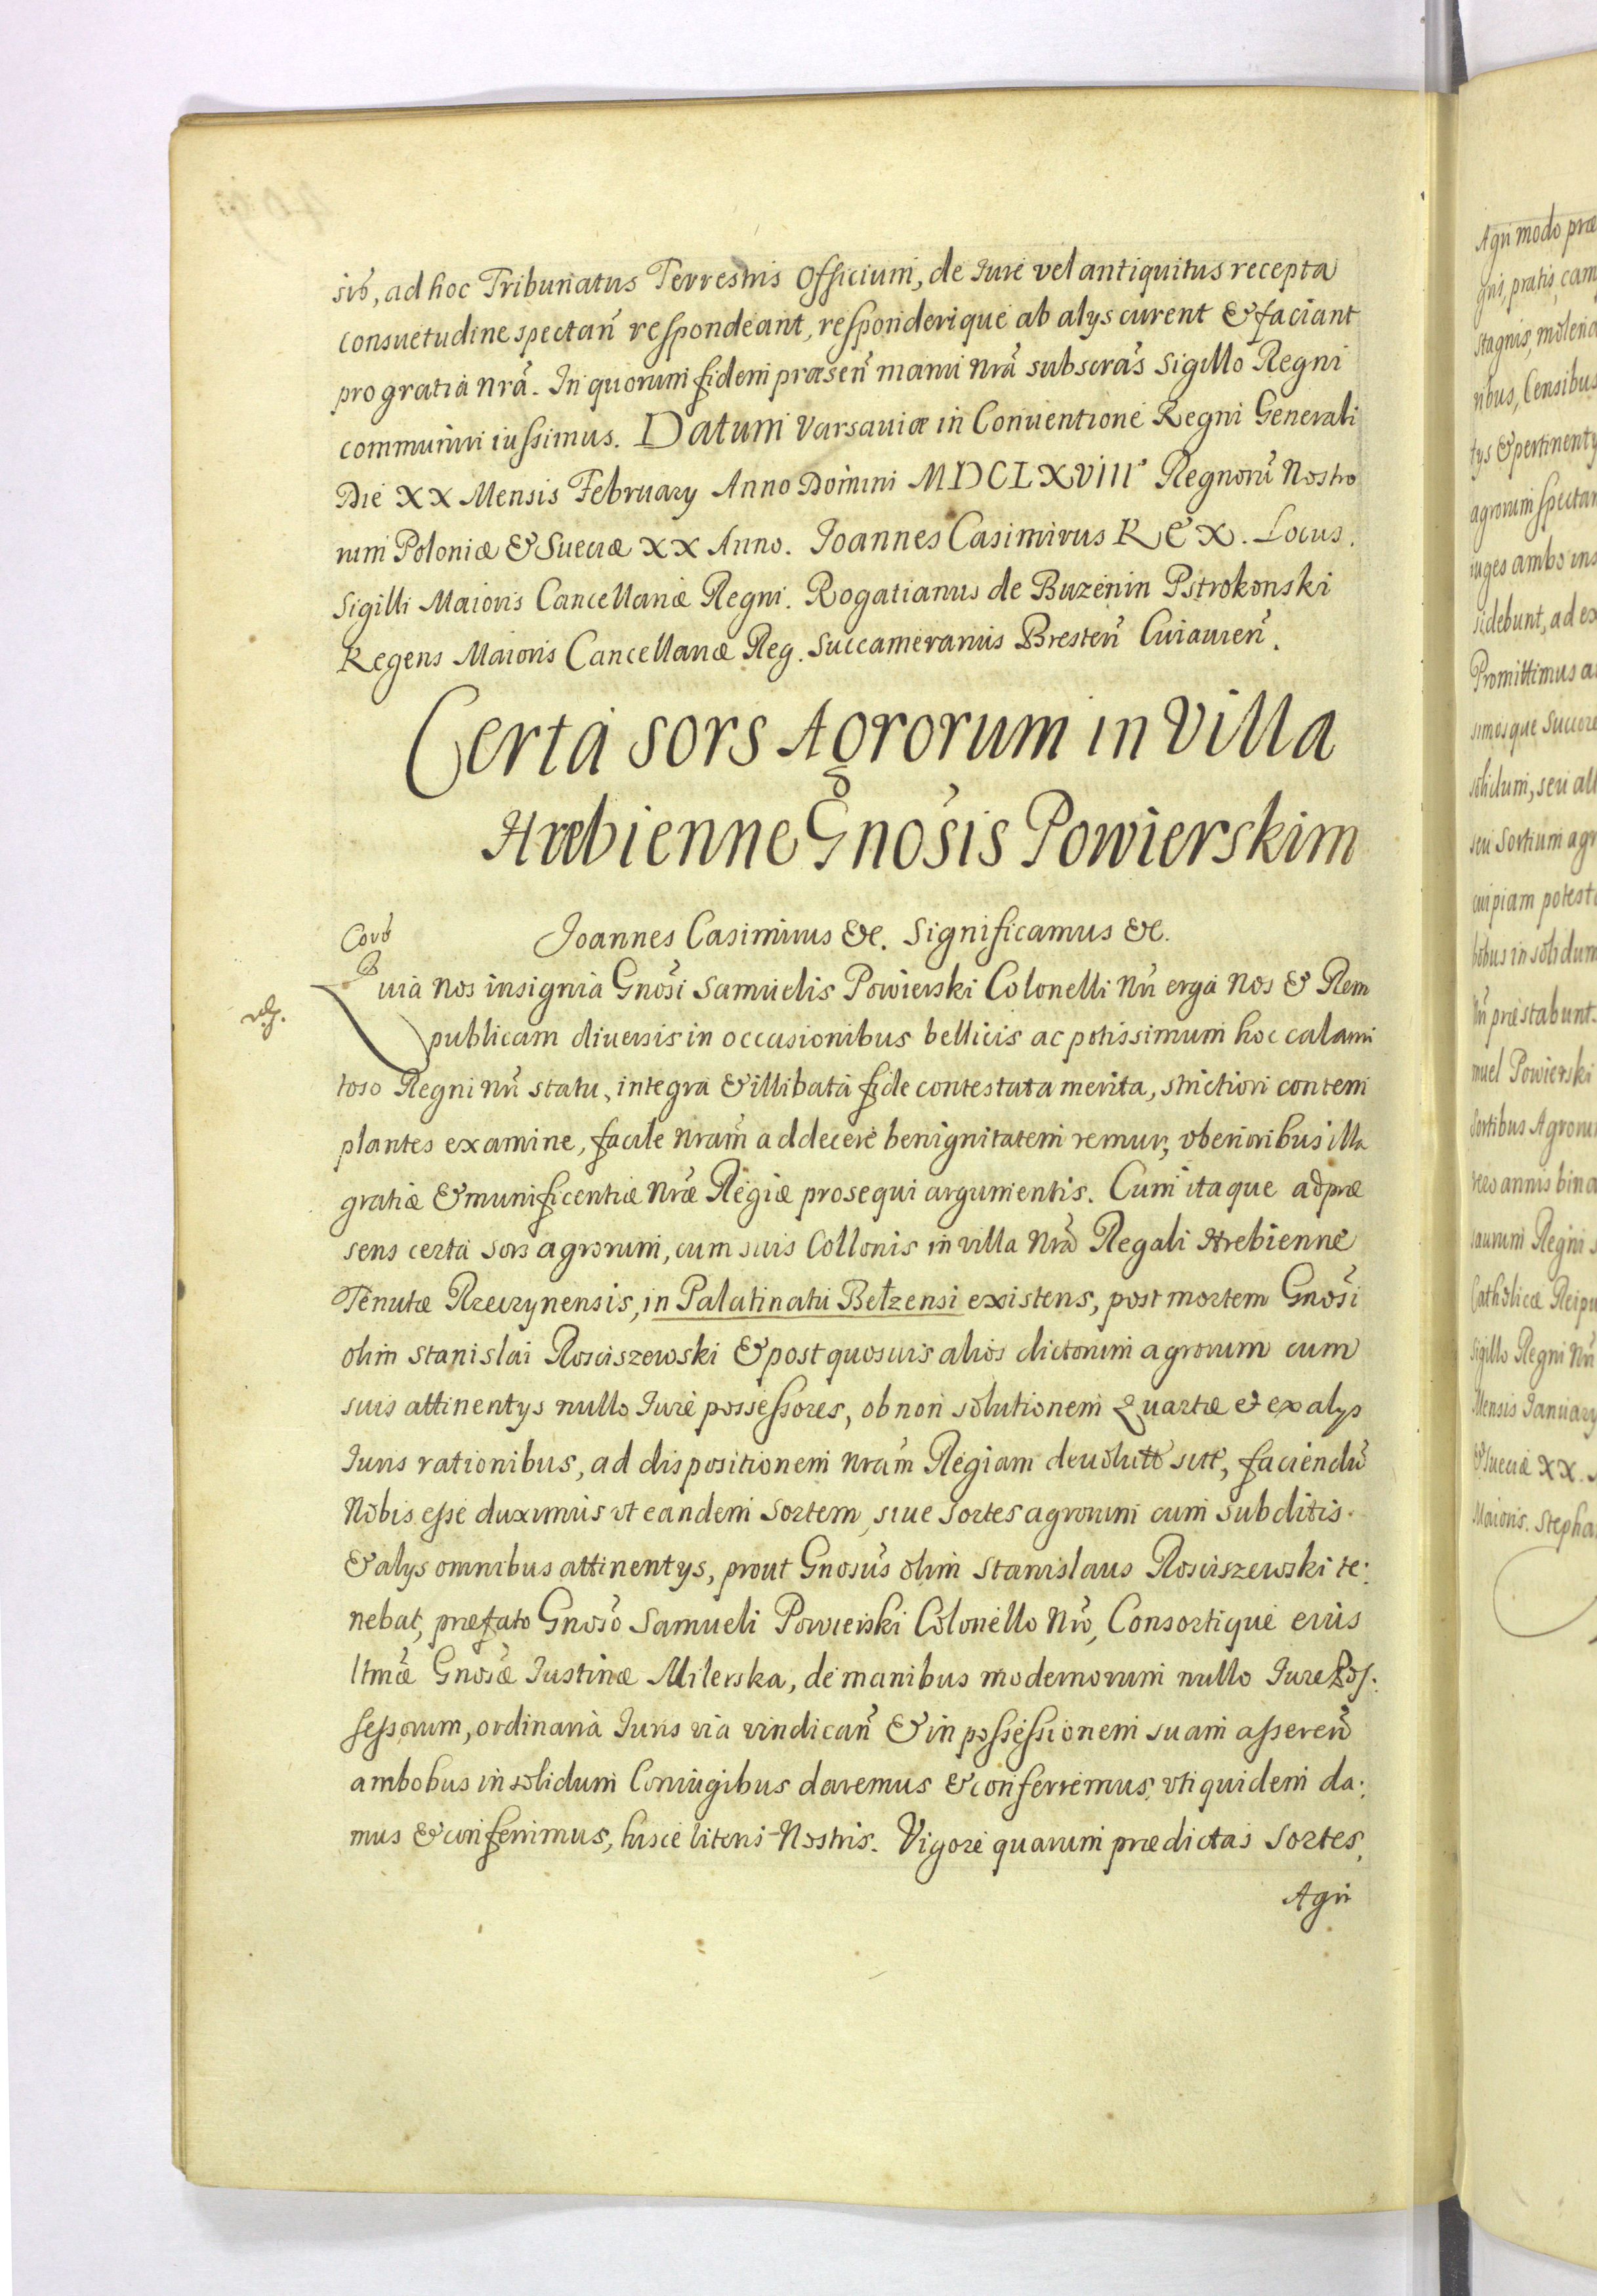 sib, ad hoc Tribunatus Terrestris Officium, de Iure vel antiquitus recepta
consuetudine spectan̄ respondeant, responderique ab alys curent & faciant
pro gratia nrā. In quorum fidem præsen̄ manu nrā subscrās Sigillo Regni
communiri iussimus. Datum Varsaviæ in Conventione Regni Generali
Die XX Mensis February Anno Domini MDCLXVIII° Regnorū Nostro
rum Poloniæ & Sueciæ XX Anno. Joannes Casimirus REX. Locus.
Sigilli Maioris Cancellariæ Regni. Rogatianus de Buzenin Pstrokonski
Regens Maioris Cancellariæ Reg. Succamerarius Bresten̄ Cuiauien̄.
Certa sors Agrorum in Villa
Hrebienne Gnosis Powierskim
Joannes Casimirus &c. Significamus &c.
Quia nos insignia Gnosi Samuelis Powierski Colonelli nrī erga Nos & Rem
publicam diuersis in occasionibus bellicis ac potissimum hoc calami
toso Regni nrī statu, integra & illibata fide contestata merita, strictiori contem
plantes examine, facile nram̄ addecere benignitatem remur, vberioribus illa
gratiæ & munificentiæ nræ Regiæ prosequi argumentis. Cum itaque ad præ
sens certa sors agrorum, cum suis Collonis in villa nrā Regali Hrebienne
Tenutæ Rzeczynensis, in Palatinatu Bełzensi existens, post mortem Gnosi
olim Stanislai Rosciszewski & post quosuis alios dictorum agrorum cum
suis attinentys nullo Iure possessores, ob non solutionem Quartæ et ex alys
Iuris rationibus, ad dispositionem nram̄ Regiam deuolutæ sitt, faciendū
Nobis esse duximus vt eandem Sortem, siue sortes agrorum cum subditis
& alys omnibus attinentys, prout Gnosus olim Stanislaus Rosciszewski te:
nebat, præfato Gnoso Samueli Powierski Colonello nrō, Consortique eius
ltmæ Gnosæ Iustinæ Milerska, de manibus modernorum nullo Iure Pos:
sessorum, ordinaria Iuris via vindican̄ & in possessionem suam asseren̄
ambobus in solidum Coniugibus daremus & conferremus, vti quidem da:
mus & conferimus, hisce literis Nostris. Vigore quarum prædictas Sortes,
Agri
Agri modo præ
gris, pratis, cam
stagnis, molend
ribus, Censibus
tys & pertinenty
agrorum spectan
iuges ambo ins
sidebunt, ad ex
Promittimus a
simosque Succes
solidum, seu all
seu Sortium agr
cuipiam potest
bobus in solidum
nrī præstabunt.
muel Powierski
Sortibus Agroru
annis bina
saurum Regni
Catholicæ Reipu
Sigillo Regni nrī
Mensis Ianuary
& Sueciæ XX.
Maioris. Stepha